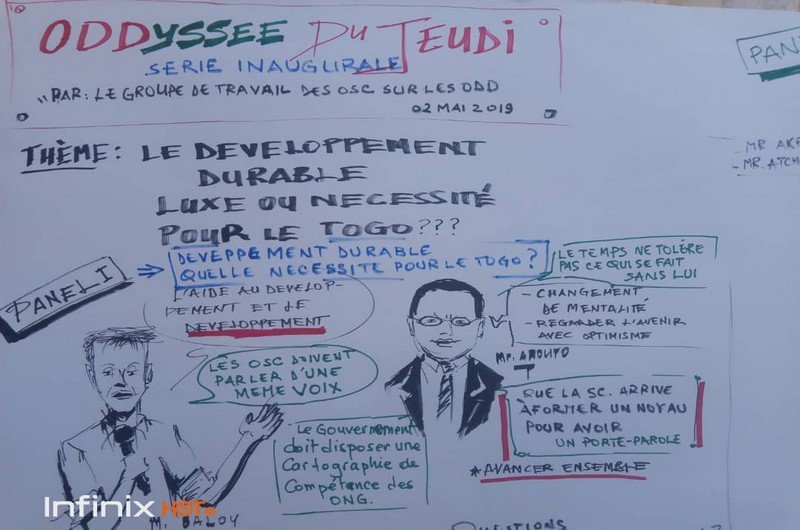 ODDYSSEE DU JEUDI
SERIE INAUGURALE
"PAR: LE GROUPE DE TRAVAIL DES OSC SUR LES ODD
02 MAI 2019
THÈME: LE DEVELOPPEMENT
DURABLE
LUXE OU NECESSITÉ
POUR LE TOGO???
PANEL I
DEVEPPEMENT DURABLE
QUELLE NECESSITE POUR LE TOGO?
L'AIDE AU DEVELOP-
PEMENT ET LE
DEVELOPPEMENT
LES OSC DOIVENT
PARLER D'UNE
MEME VOIX
Le Gouvernement
doit disposer une
Cartographie de
Compétence des
ONG.
LE TEMPS NE TOLÈRE
PAS CE QUI SE FAIT
SANS LUI
- CHANGEMENT
DE MENTALITÉ
- REGARDER L'AVENIR
AVEC OPTIMISME
QUE LA SC. ARRIVE
A FORMER UN NOYAU
POUR AVOIR
UN PORTE-PAROLE
*AVANCER ENSEMBLE
QUESTIONS
PAN
- MR AK
- MR. ATCH
Infinix HOT